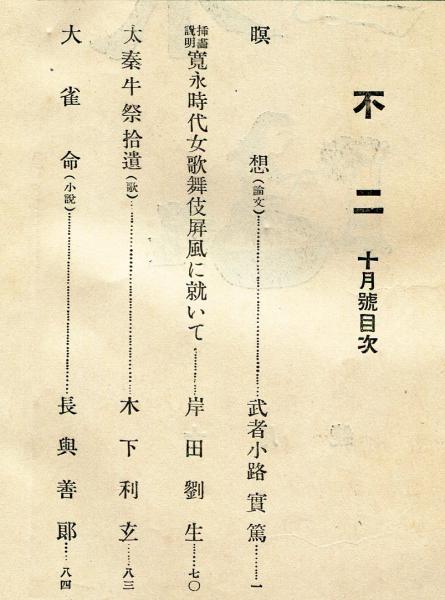 不二 十月號目次
瞑想(論文)…………武者小路實篤……一
挿畫說明 寬永時代女歌舞伎屏風に就いて……岸田劉生……七〇
太秦牛祭拾遺(歌)…………木下利玄……八三
大雀命(小說)…………長與善郞……八四